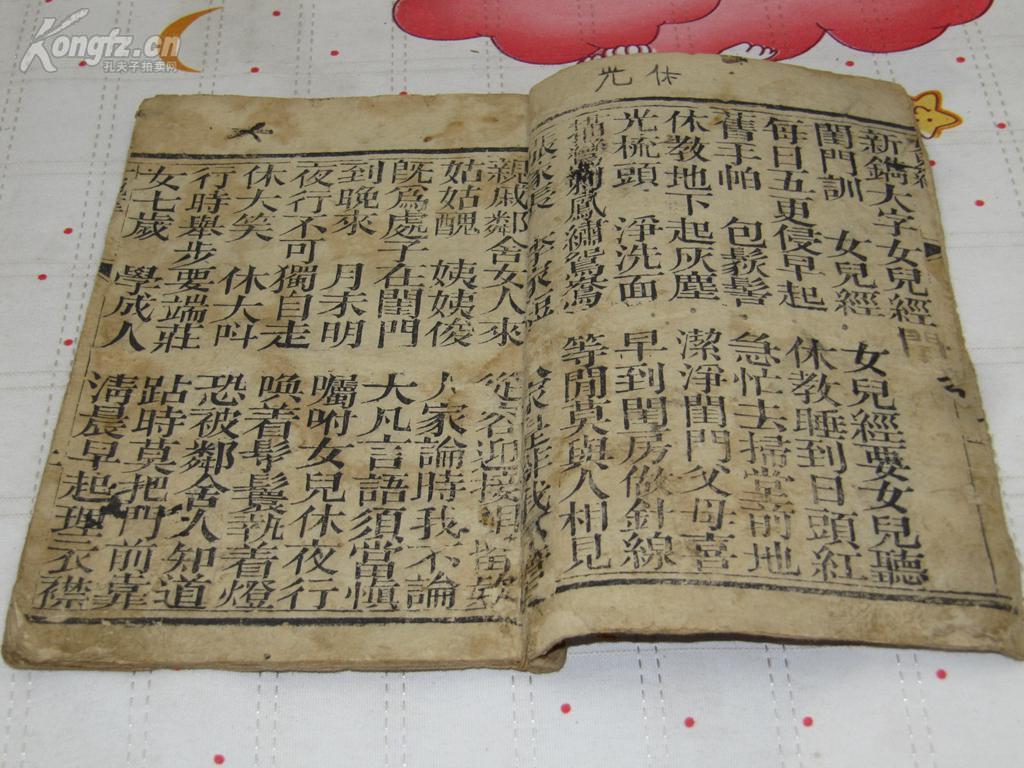 Kongfz.cn
孔夫子拍卖网
光 休
新鐫大字女兒經
閨門訓 女兒經 女兒經要女兒聽
每日五更侵早起 休教睡到日頭紅
舊手帕 包鬆髻 急忙去掃堂前地
休教地下起灰塵 潔淨閨門父母喜
光梳頭 淨洗面 早到閨房做針線
描鸞刺鳳繡鴛鴦 等閒莫與人相見
張家長 李家短
親戚鄰舍女人來 從容迎接
姑姑醜 姨姨俊 人家論時我不論
既為處子在閨門 大凡言語須當慎
到晚來 月未明 囑咐女兒休夜行
夜行不可獨自走 喚着丫鬟執着燈
休大笑 休大呌 恐被鄰舍人知道
行時舉步要端莊 跕時莫把門前靠
女七歲 學成人 清晨早起理衣襟